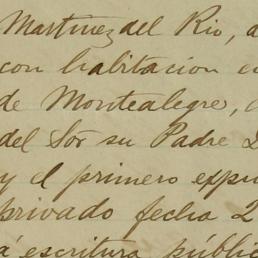 Martinez del Rio, a
con habitacion e
de Montealegre, 
del Sor su Padre D
y el primero expu
privado fecha 2
á escritura públic